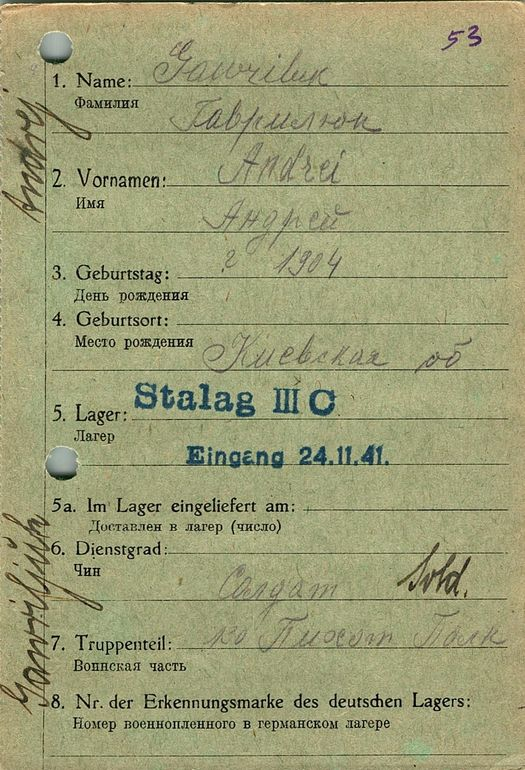 53
1. Name: Gawriluk
Фамилия
Гаврилюк
2. Vornamen: Andrei
Имя
Андрей
? 1904
3. Geburtstag:
День рождения
4. Geburtsort:
Место рождения
Киевская об
5. Lager: Stalag III C
Лагер
Eingang 24.11.41.
5a. Im Lager eingeliefert am:
Доставлен в лагер (число)
6. Dienstgrad:
Чин
Солдат Sold.
7. Truppenteil: Пихот Полк
Воинская часть
8. Nr. der Erkennungsmarke des deutschen Lagers:
Номер военнопленного в германском лагере
Andrej
Gawriljuk